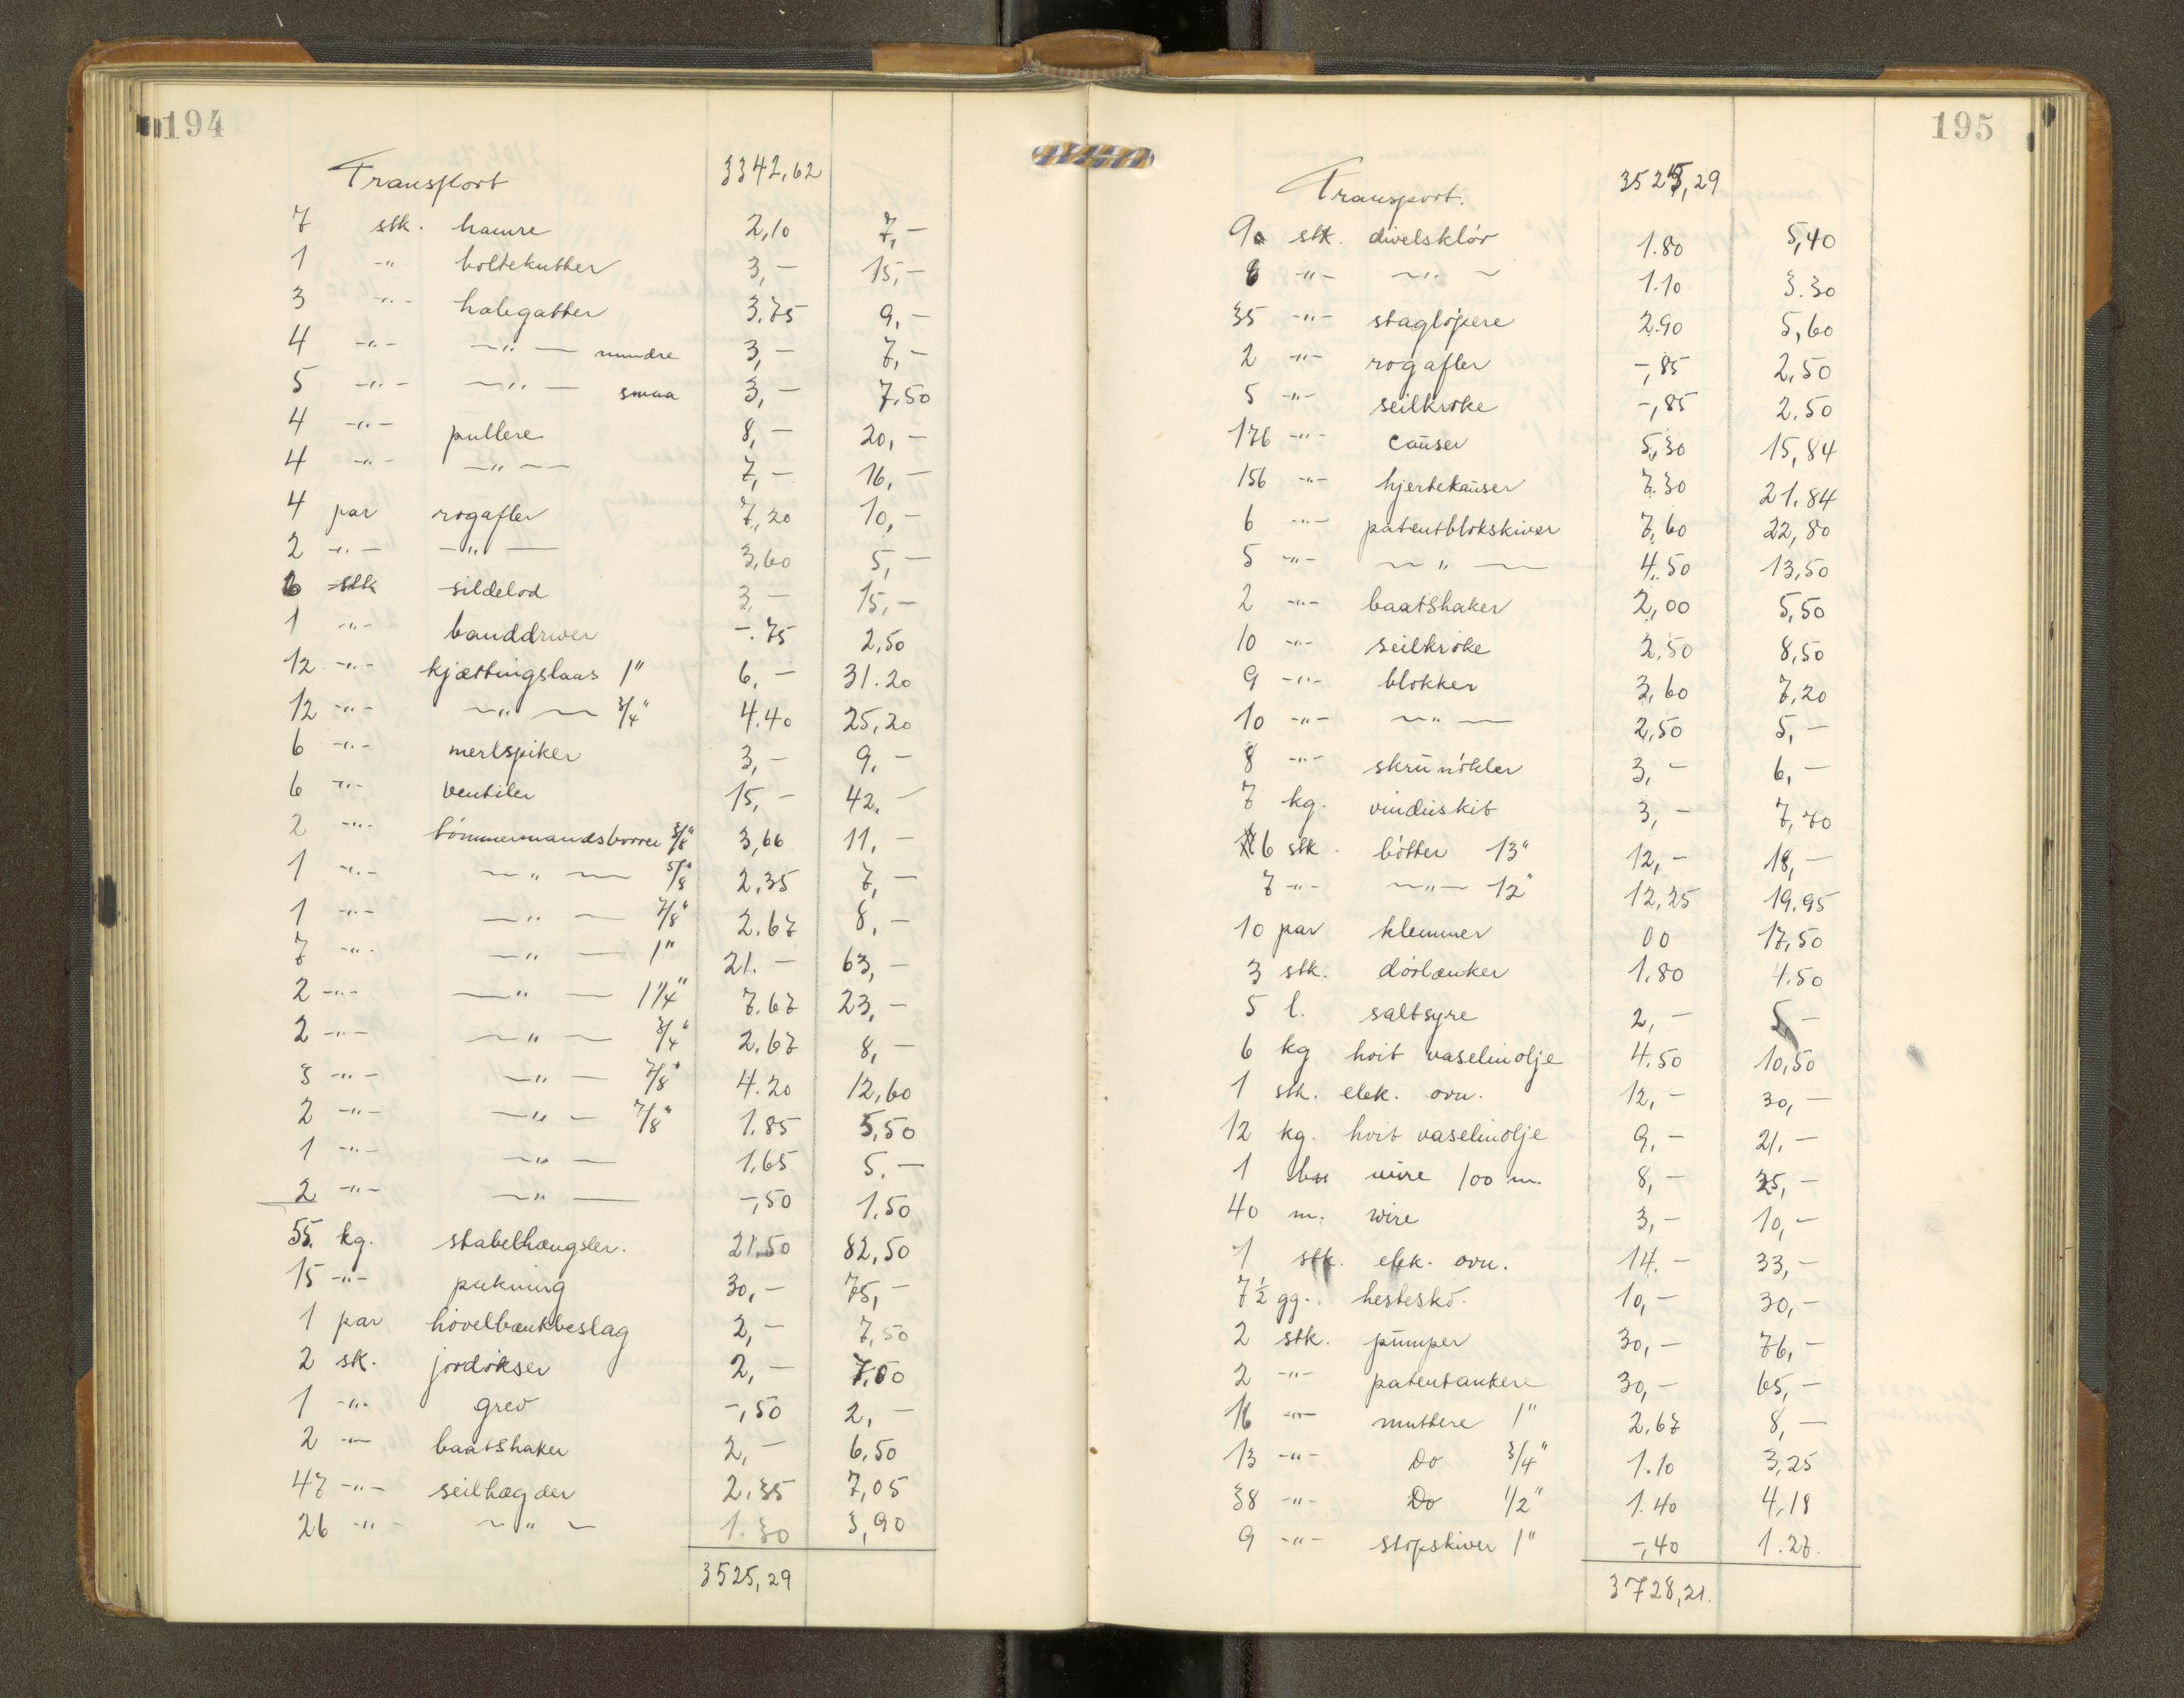 194
Transport 3342,62
7 stk. hamre 2,10 7,-
1 -"- boltekutter 3,- 15,-
3 -"- halegatter 3.75 9,-
4 -"- -"- mindre 3,- 7,-
5 -"- -"- smaa 3,- 7.50
4 -"- pullere 8,- 20,-
4 -"- -"- 7,- 16,-
4 par rogafler 7,20 10,-
2 -"- -"- 3,60 5,-
6 stk sildelod 3,- 15,-
1 -"- banddriver -.75 2,50
12 -"- kjættingslaas 1" 6,- 31.20
12 -"- -"- 3/4" 4.40 25,20
6 -"- merlspiker 3,- 9,-
6 -"- ventiler 15,- 42,-
2 -"- tömmermandsborrer 3/8" 3,66 11,-
1 -"- -"- 5/8" 2,35 7,-
1 -"- -"- 7/8" 2.67 8,-
7 -"- -"- 1" 21.- 63,-
2 -"- -"- 1 1/4" 7.67 23,-
2 -"- -"- 3/4" 2.67 8,-
3 -"- -"- 7/8" 4.20 12,60
2 -"- -"- 7/8" 1.85 5,50
1 -"- -"- 1,65 5.-
2 -"- -"- -,50 1.50
55 kg. stabelhængsler. 21.50 82,50
15 -"- pakning 30,- 75,-
1 par hövelbænkbeslag 2,- 7,50
2 sk. jordökser 2,- 7.00
1 -"- grev -,50 2,-
2 -"- baatshaker 2,- 6,50
47 -"- seilhægder 2.35 7,05
26 -"- -"- 1.30 3,90
3525,29
195
Transport. 3525,29
9 stk. divelsklör 1.80 5,40
6 -"- -"- 1.10 3.30
35 -"- staglöpere 2.90 5,60
2 -"- rogafler -,85 2,50
5 -"- seilkroke -,85 2.50
176 -"- causer 5,30 15,84
156 -"- hjertekauser 7.30 21.84
6 -"- patentblokskiver 7,60 22,80
5 -"- -"- 4.50 13,50
2 -"- baatshaker 2,00 5,50
10 -"- seilkroke 2,50 8,50
9 -"- blokker 3,60 7,20
10 -"- -"- 2,50 5,-
8 -"- skrunökler 3,- 6,-
7 kg. vinduskit 3,- 7,70
6 stk. bötter 13" 12,- 18,-
7 -"- -"- 12" 12,25 19.95
10 par klemmer 00 17,50
3 stk. dörlænker 1.80 4.50
5 l. saltsyre 2,- 5-
6 kg hvit vaselinolje 4.50 10,50
1 stk. elek. ovn. 12,- 30,-
12 kg. hvit vaselinolje 9,- 21,-
1 wire 100 m. 8,- 25,-
40 m. wire 3,- 10,-
1 stk. elek. ovn. 14.- 33,-
7 1/2 gg. hestesko. 10,- 30,-
2 stk. pumper 30,- 76,-
2 -"- patentankere 30,- 65,-
16 -"- muttere 1" 2.67 8,-
13 -"- Do 3/4" 1.10 3,25
38 -"- Do 1/2" 1.40 4,18
9 -"- stopskiver 1" -,40 1.27.
3728,21.